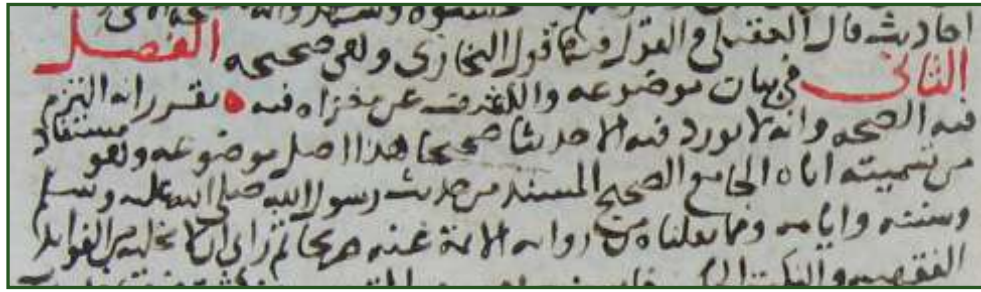 احاديث قال العقيلي والقول فيها قول البخاري وهي صحيحه الفصل
الثاني في بيان موضوعه والكشف عن مغزاه فيه ه تقرر انه التزم
فيه الصحه وانه لا يورد فيه الا حديثا صحيحا هذا اصل موضوعه وهو مستفاد
من تسميته اياه الجامع الصحيح المسند من حديث رسول الله صلى الله عليه وسلم
وسننه وايامه ومما نقلناه من روايه الائمة عنه صريحا ثم راى ان لا يخليه من الفوايد
الفقهيه والنكت